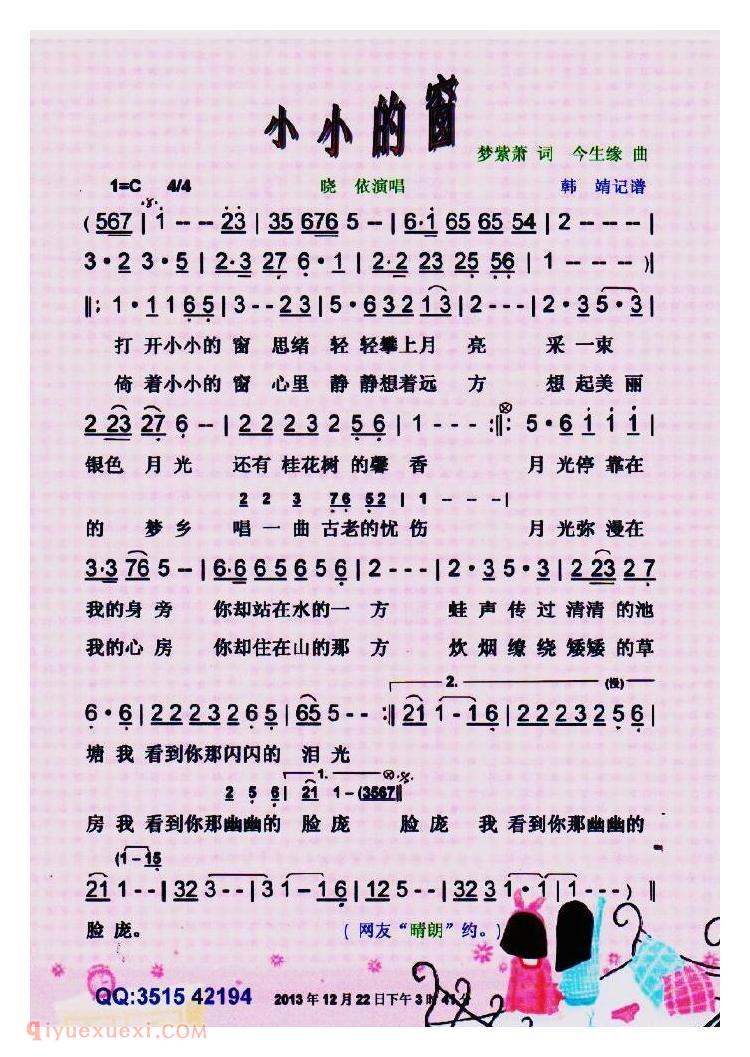 小小的窗
梦紫萧 词 今生缘 曲
1=C 4/4 晓 依演唱 韩 靖记谱
( 567 | 1 -- 23 | 35 676 5 -- | 6·1 65 65 54 | 2 -- -- |
3·2 3·5 | 2·3 27 6·1 | 2·2 23 25 56 | 1 -- -- )|
‖: 1·1 1 6 5 | 3 -- 2 3 | 5·6 3 2 1 3 | 2 --- | 2·3 5·3 |
打 开小小的 窗 思绪 轻 轻攀上月 亮 采 一束
倚 着小小的 窗 心里 静 静想着远 方 想 起美 丽
2 23 27 6 -- | 2 2 2 3 2 5 6 | 1 --- :‖: 5·6 1 1 1 |
银色 月 光 还有 桂花树 的馨 香 月 光停 靠在
2 2 3 7 6 5 2 | 1 - - - |
的 梦 乡 唱 一 曲 古老的忧 伤 月 光弥 漫在
3·3 76 5 -- | 6·6 6 5 6 5 6 5 | 2 --- | 2·3 5·3 | 2 23 2 7 |
我的 身 旁 你却站在水的一 方 蛙 声 传 过 清清 的池
我的 心 房 你却住在山的那 方 炊 烟 缭 绕 矮矮 的草
2. (慢)
6·6 | 2 2 2 3 2 6 5 | 65 5 -- :‖ 21 1 - 1 6 | 2 2 2 3 2 5 6 |
塘 我 看到你那闪闪的 泪 光
1.
2 5 6 | 21 1 - (3567‖
房 我 看到你那幽幽的 脸 庞 脸 庞 我 看到你那幽幽的
(1 - 15
21 1 -- | 32 3 -- | 3 1 - 1 6 | 12 5 -- | 32 3 1·1 | 1 -- ) ‖
脸 庞。 ( 网友“晴朗”约。)
QQ:3515 42194 2013 年 12 月 22 日下午 3 时 41 分
qiyuexuexi.com